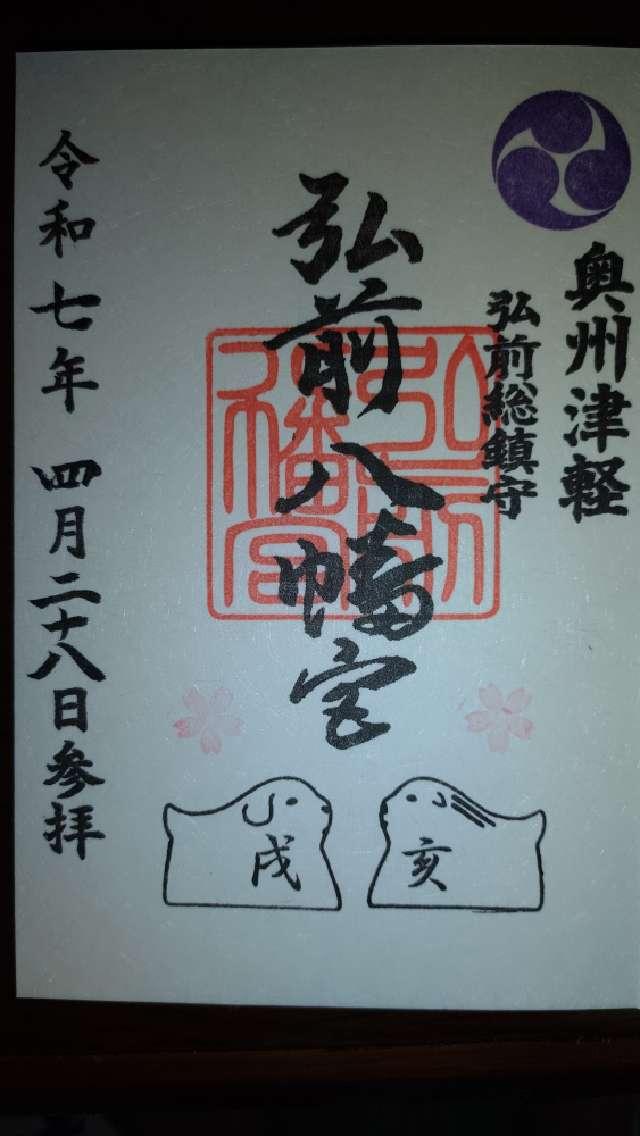 奥州津軽
弘前総鎮守
弘前八幡宮
弘前八幡宮
令和七年 四月二十八日参拝
戌
亥